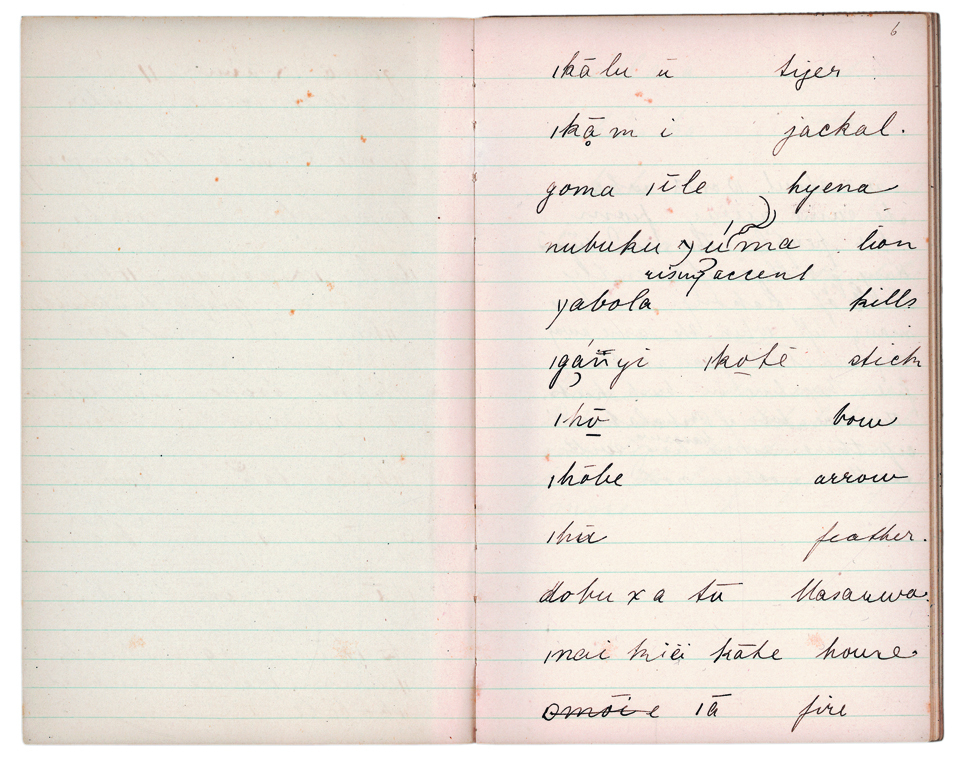 6
ıkālu ū tiger
ıkḁ̄m i jackal.
goma ıūle hyena
nubuku yúma lion
rising accent
yabola kills
ıgáñyi ıko̲tē stick
ıkō̲ bow
ıkōbe arrow
ıkū feather.
dobu x a tū Masauwa.
mai kiei kōke house
o̶m̶ō̶i̶e̶ ıā fire